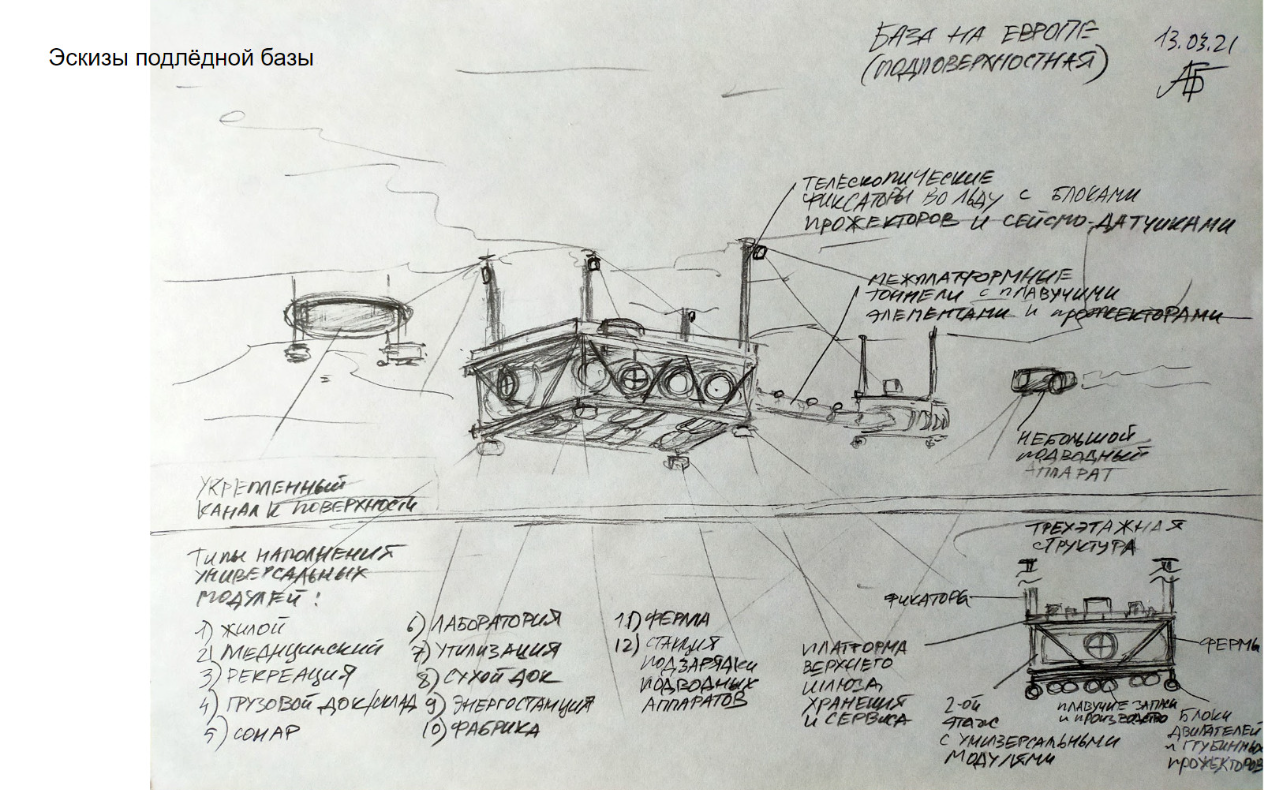 Эскизы подлёдной базы
БАЗА НА ЕВРОПЕ
(ПОДПОВЕРХНОСТНАЯ)
13.03.21
АБ
ТЕЛЕСКОПИЧЕСКИЕ
ФИКСАТОРЫ ВО ЛЬДУ С БЛОКАМИ
ПРОЖЕКТОРОВ И СЕЙСМО-ДАТЧИКАМИ
МЕЖПЛАТФОРМНЫЕ
ТОННЕЛИ С ПЛАВУЧИМИ
ЭЛЕМЕНТАМИ И ПРОЖЕКТОРАМИ
НЕБОЛЬШОЙ
ПОДВОДНЫЙ
АППАРАТ
УКРЕПЛЕННЫЙ
КАНАЛ К ПОВЕРХНОСТИ
ТИПЫ НАПОЛНЕНИЯ
УНИВЕРСАЛЬНЫХ
МОДУЛЕЙ:
1) ЖИЛОЙ
2) МЕДИЦИНСКИЙ
3) РЕКРЕАЦИЯ
4) ГРУЗОВОЙ ДОК/СКЛАД
5) СОНАР
6) ЛАБОРАТОРИЯ
7) УТИЛИЗАЦИЯ
8) СУХОЙ ДОК
9) ЭНЕРГОСТАНЦИЯ
10) ФАБРИКА
11) ФЕРМА
12) СТАНЦИЯ
ПОДЗАРЯДКИ
ПОДВОДНЫХ
АППАРАТОВ
ТРЕХЭТАЖНАЯ
СТРУКТУРА
ФИКАТОРЫ
ФЕРМЫ
ПЛАТФОРМА
ВЕРХНЕГО
ШЛЮЗА,
ХРАНЕНИЯ
И СЕРВИСА
2-ОЙ
ЭТАЖ
С УНИВЕРСАЛЬНЫМИ
МОДУЛЯМИ
ПЛАВУЧИЕ ЗАПАСЫ
И ПРОИЗВОДСТВО
БЛОКИ
ДВИГАТЕЛЕЙ
И ГЛУБИННЫХ
ПРОЖЕКТОРОВ